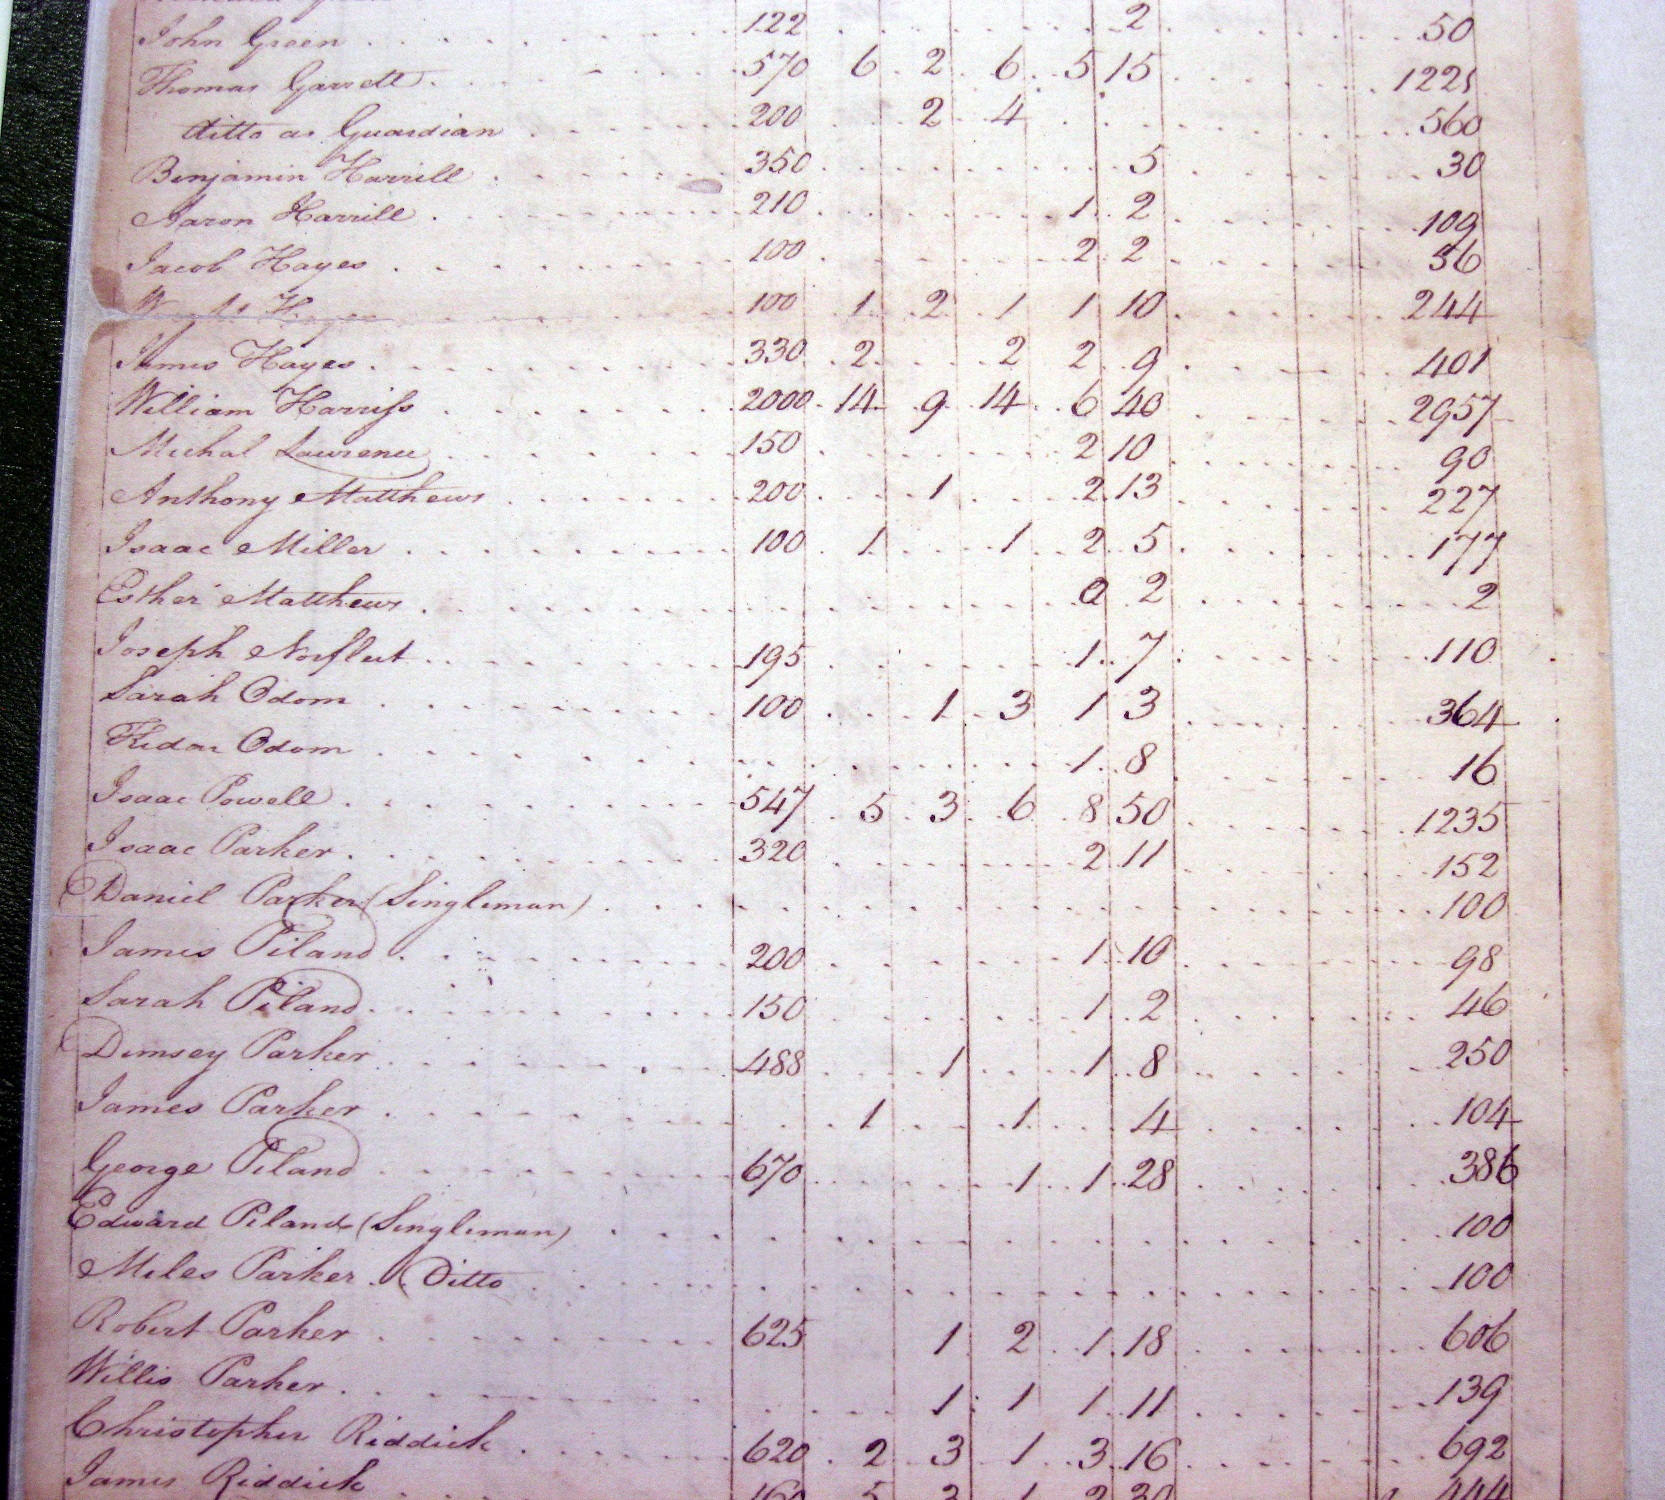 John Green 122 2 50
Thomas Garrett 570 6 2 6 5 15 1225
ditto as Guardian 200 2 4 560
Benjamin Harrill 350 5 30
Aaron Harrill 210 1 2 109
Jacob Hayes 100 2 2 56
100 1 2 1 1 10 244
James Hayes 330 2 2 2 9 401
William Harriss 2000 14 9 14 6 40 2957
Michal Lawrence 150 2 10 90
Anthony Matthews 200 1 2 13 227
Isaac Miller 100 1 1 2 5 177
Esther Matthews 0 2 2
Joseph Norfleet 195 1 7 110
Sarah Odom 100 1 3 1 3 364
Kidar Odom 1 8 16
Isaac Powell 547 5 3 6 8 50 1235
Isaac Parker 320 2 11 152
Daniel Parker (Singleman) 100
James Piland 200 1 10 98
Sarah Piland 150 1 2 46
Demsey Parker 488 1 1 8 250
James Parker 1 1 4 104
George Piland 670 1 1 28 386
Edward Piland (Singleman) 100
Miles Parker (Ditto 100
Robert Parker 625 1 2 1 18 606
Willis Parker 1 1 1 11 139
Christopher Riddick 620 2 3 1 3 16 692
James Riddick 160 5 3 1 2 30 444